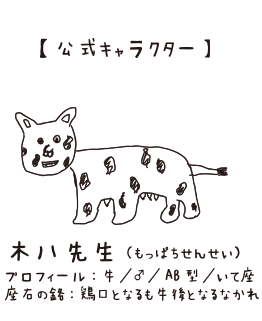 【公式キャラクター】
木八先生（もっぱちせんせい）
プロフィール：牛／♂／AB型／いて座
座右の銘：鶏口となるも牛後となるなかれ